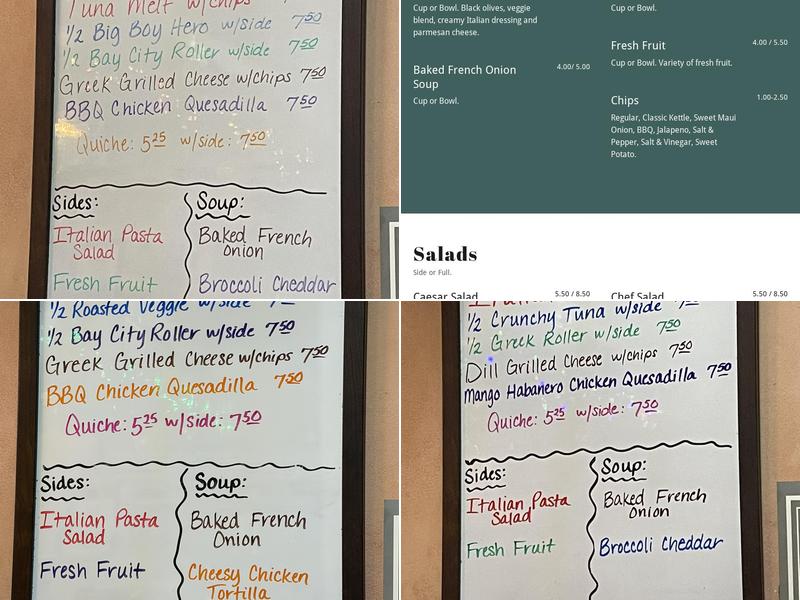 Tuna Melt w/chips
1/2 Big Boy Hero w/side 7.50
1/2 Bay City Roller w/side 7.50
Greek Grilled Cheese w/chips 7.50
BBQ Chicken Quesadilla 7.50
Quiche: 5.25 w/side: 7.50
Sides:
Italian Pasta
Salad
Fresh Fruit
Soup:
Baked French
Onion
Broccoli Cheddar
Cup or Bowl. Black olives, veggie
blend, creamy Italian dressing and
parmesan cheese.
Baked French Onion 4.00/ 5.00
Soup
Cup or Bowl.
Cup or Bowl.
Fresh Fruit 4.00 / 5.50
Cup or Bowl. Variety of fresh fruit.
Chips 1.00-2.50
Regular, Classic Kettle, Sweet Maui
Onion, BBQ, Jalapeno, Salt &
Pepper, Salt & Vinegar, Sweet
Potato.
Salads
Side or Full.
Caesar Salad 5.50 / 8.50
Chef Salad 5.50 / 8.50
1/2 Roasted Veggie w/side
1/2 Bay City Roller w/side 7.50
Greek Grilled Cheese w/chips 7.50
BBQ Chicken Quesadilla 7.50
Quiche: 5.25 w/side: 7.50
Sides:
Italian Pasta
Salad
Fresh Fruit
Soup:
Baked French
Onion
Cheesy Chicken
Tortilla
1/2 Crunchy Tuna w/side
1/2 Greek Roller w/side 7.50
Dill Grilled Cheese w/chips 7.50
Mango Habanero Chicken Quesadilla 7.50
Quiche: 5.25 w/side: 7.50
Sides:
Italian Pasta
Salad
Fresh Fruit
Soup:
Baked French
Onion
Broccoli Cheddar